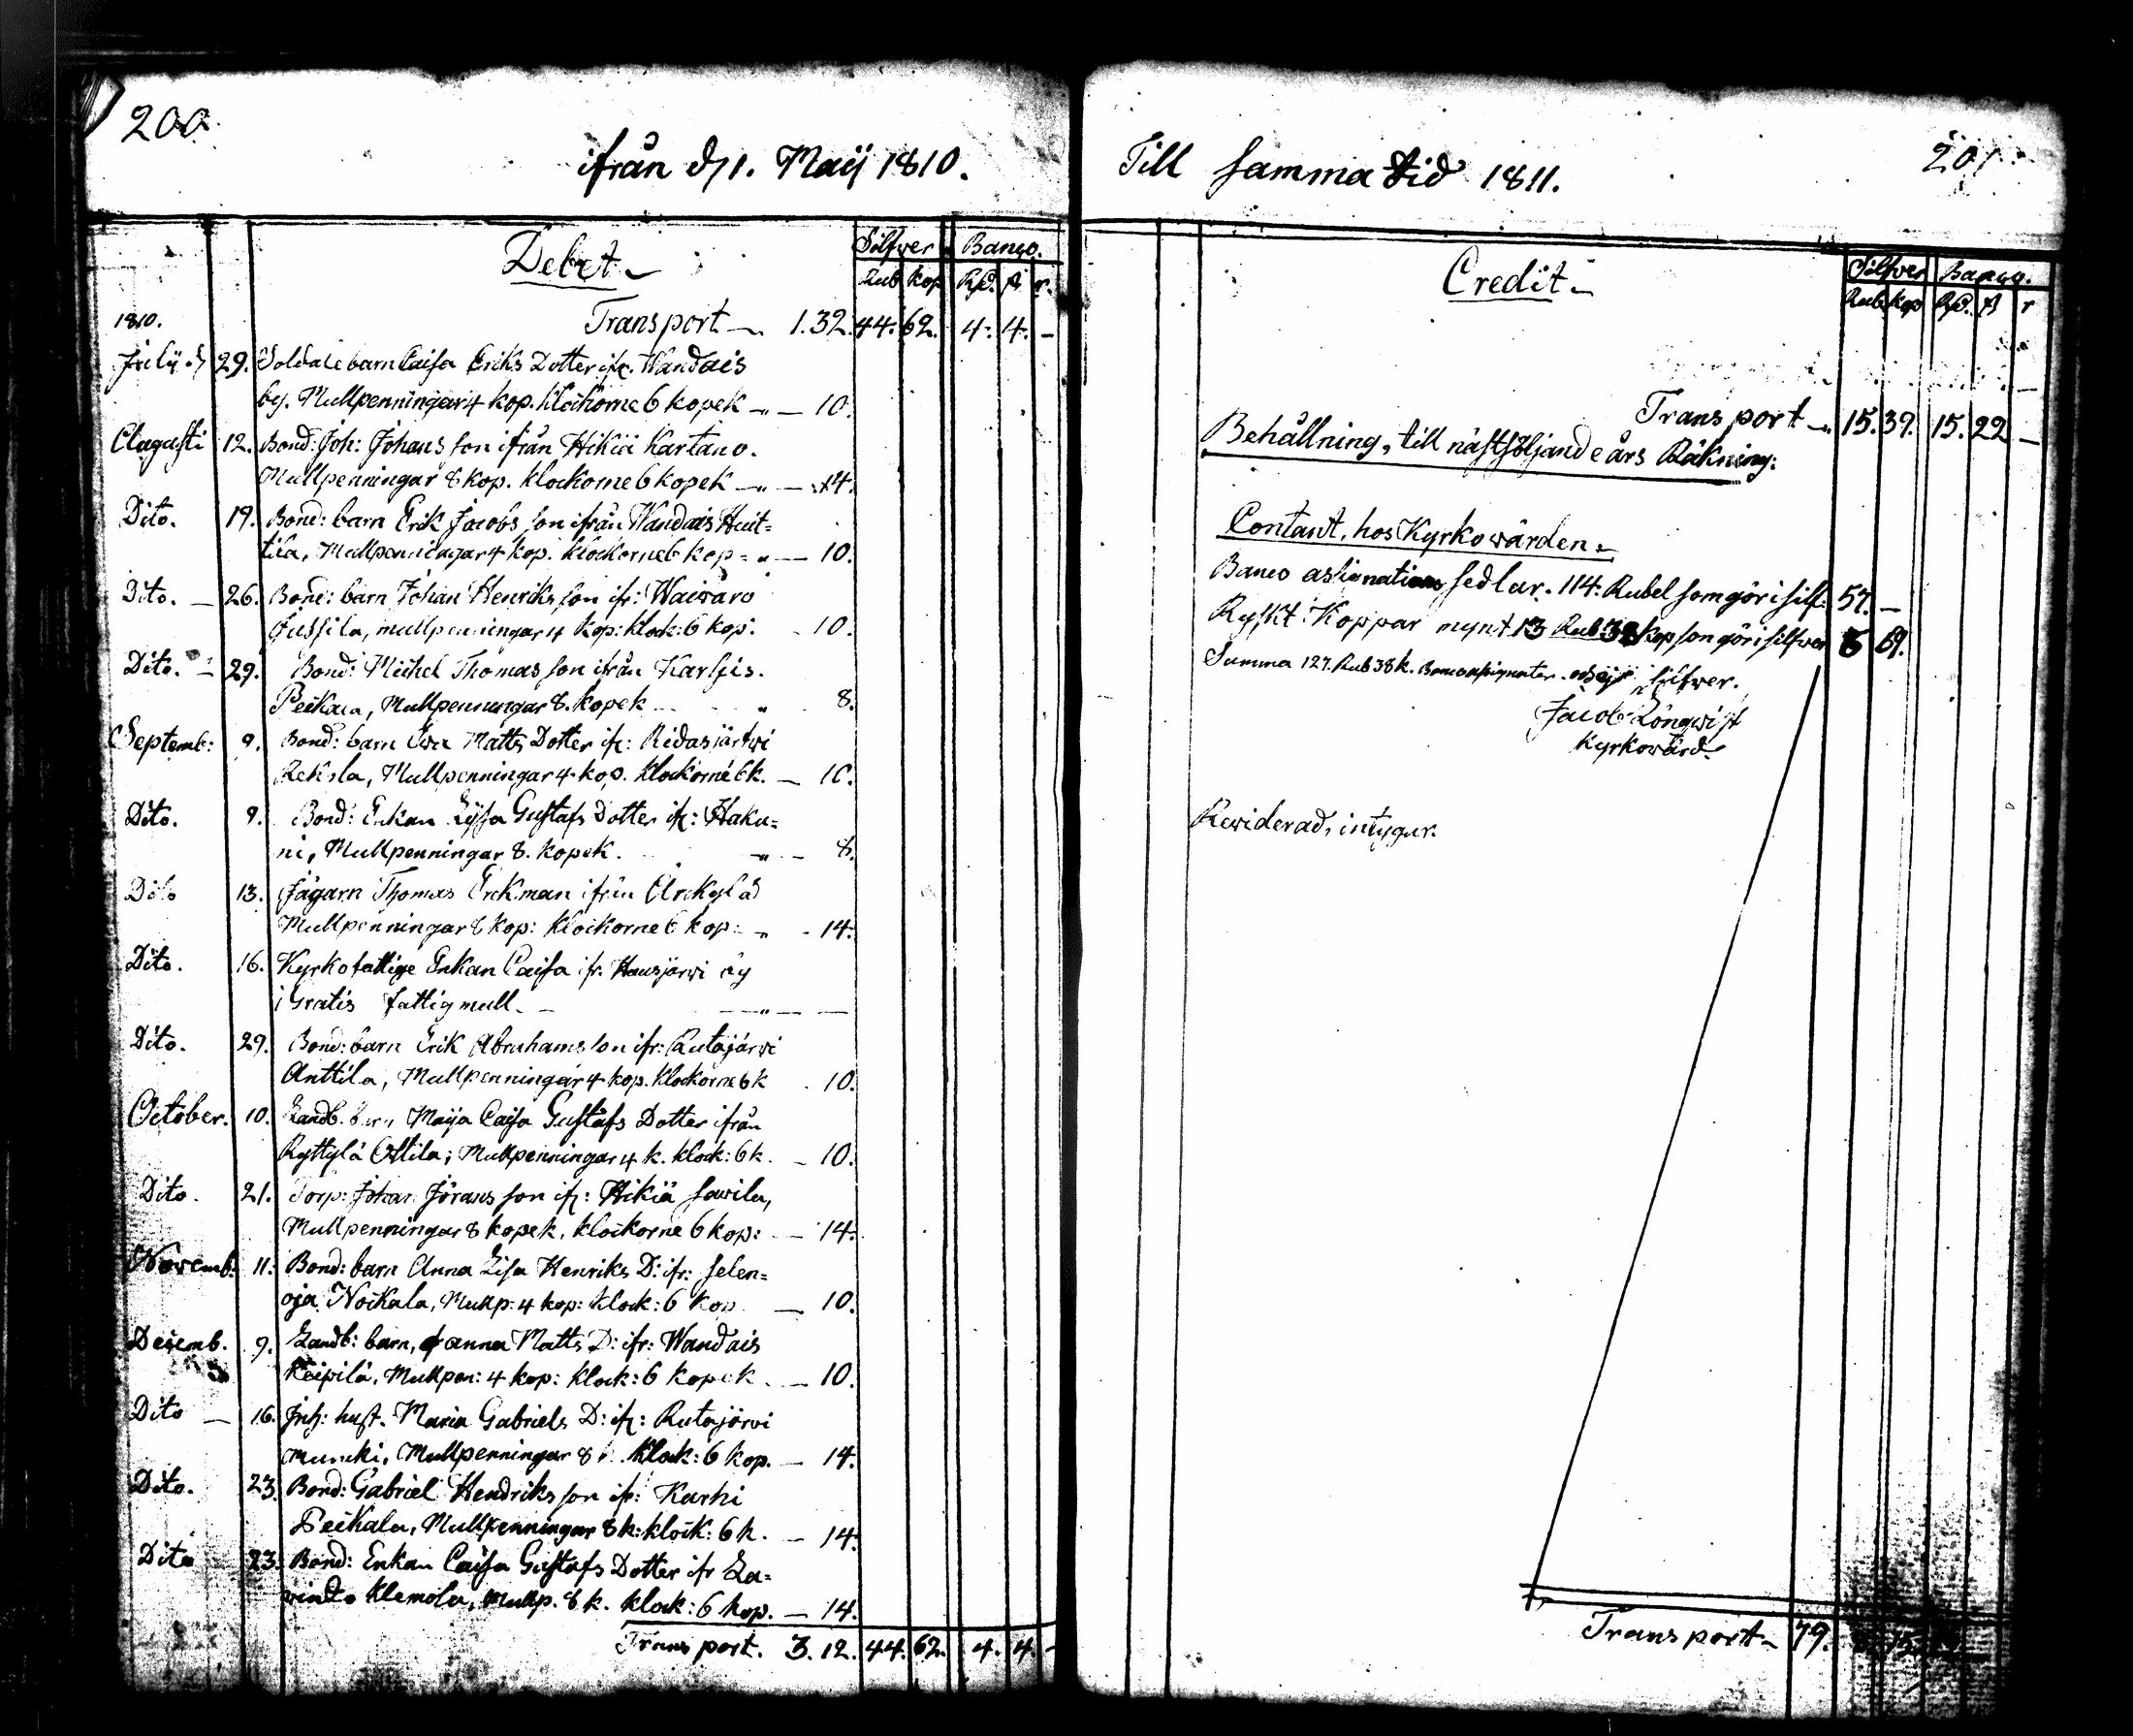 200.
ifrån d. 1. Maij 1810.
Debet
Silfver Banco.
Rub kop Rd. ß r.
1810. Transport 1.32. 44. 62. 4. 4. -
Julij d 29. Soldate barn Caisa Eriks Dotter ifr. Wandais
by. Mullpenningar 4 kop. klockorne 6 kopek 10.
Augusti 12. Bond: Joh: Johansson ifrån Hikiä Kartano.
Mullpenningar 8 kop. klockorne 6 kopek 14.
Dito. 19. Bond: barn Erik Jacobsson ifrån Wandais Huit=
tila, Mullpenningar 4 kop. klockorne 6 kop 10.
Dito. 26. Bond: barn Johan Henriksson ifr: Waiwaro
Jussila, mullpenningar 4 kop: klock: 6 kop: 10.
Dito. 29. Bond: Michel Thomasson ifrån Karhis.
Peikala, Mullpenningar 8. kopek 8.
Septemb: 9. Bond: barn Ewa Matts Dotter ifr: Ridasjärwi
Reksla, Mullpenningar 4 kop. klockorne 6 k. 10.
Dito. 9. Bond: Enkan Lysa Gustafs Dotter ifr: Haku=
ni, Mullpenningar 8. kopek. 8.
Dito 13. Jägarn Thomas Enckman ifrån
Mullpenningar 8 kop: klockorne 6 kop: 14.
Dito. 16. Kyrkofattige Enkan Caisa ifr. Hausjärwi by
i Gratis fattigmull.
Dito. 29. Bond: barn Erik Abrahamsson ifr: Rutajärwi
Anttila, Mullpenningar 4 kop. klockorne 6 k 10.
October. 10. Landb. barn Maija Caisa Gustafs Dotter ifrån
Ryttylä Ottila; Mullpenningar 4 k. klock: 6 k. 10.
Dito. 21. Torp: Johan Jöransson ifr: Hikiä Sawila,
Mullpenningar 8 kopek, klockorne 6 kop: 14.
Novemb: 11. Bond: barn Anna Lisa Henriks D: ifr: Selen=
oja Nockala, Mullp: 4 kop: klock: 6 kop. 10.
Decemb. 9. Landb: barn, anna Matts D: ifr: Wandais
Keipilä, Mullpen: 4 kop: klock: 6 kopek 10.
Dito 16. Inh: hust. Maria Gabriels D: ifr: Rutajärwi
Mullpenningar 8 k. klock: 6 kop. 14.
Dito. 23. Bond: Gabriel Hendriksson ifr: Karhi
Peikala, Mullpenningar 8 k: klock: 6 k. 14.
Dito 23. Bond: Enkan Caisa Gustafs Dotter ifr La=
windo Klemola, Mullp. 8 k. klock: 6 kop. 14.
Transport. 3. 12. 44. 62. 4. 4. -
201
Till samma tid 1811.
Credit
Silfver Banco.
Rub kop Rd. ß r
Transport 15. 39. 15. 22 -
Behållning, till nästföljande års Räkning:
Contant, hos Kyrkowärden
Banco assignations sedlar. 114: Rubel som gör i silf: 57. -
Ryskt: Koppar mynt 13 Rub 38 kop som gör i silfwer 6 69.
Summa 127. Rub 38 k. silfwer.
Jacob Löngwist
Kyrkowärd
Reviderad, intygar.
Transport 79.